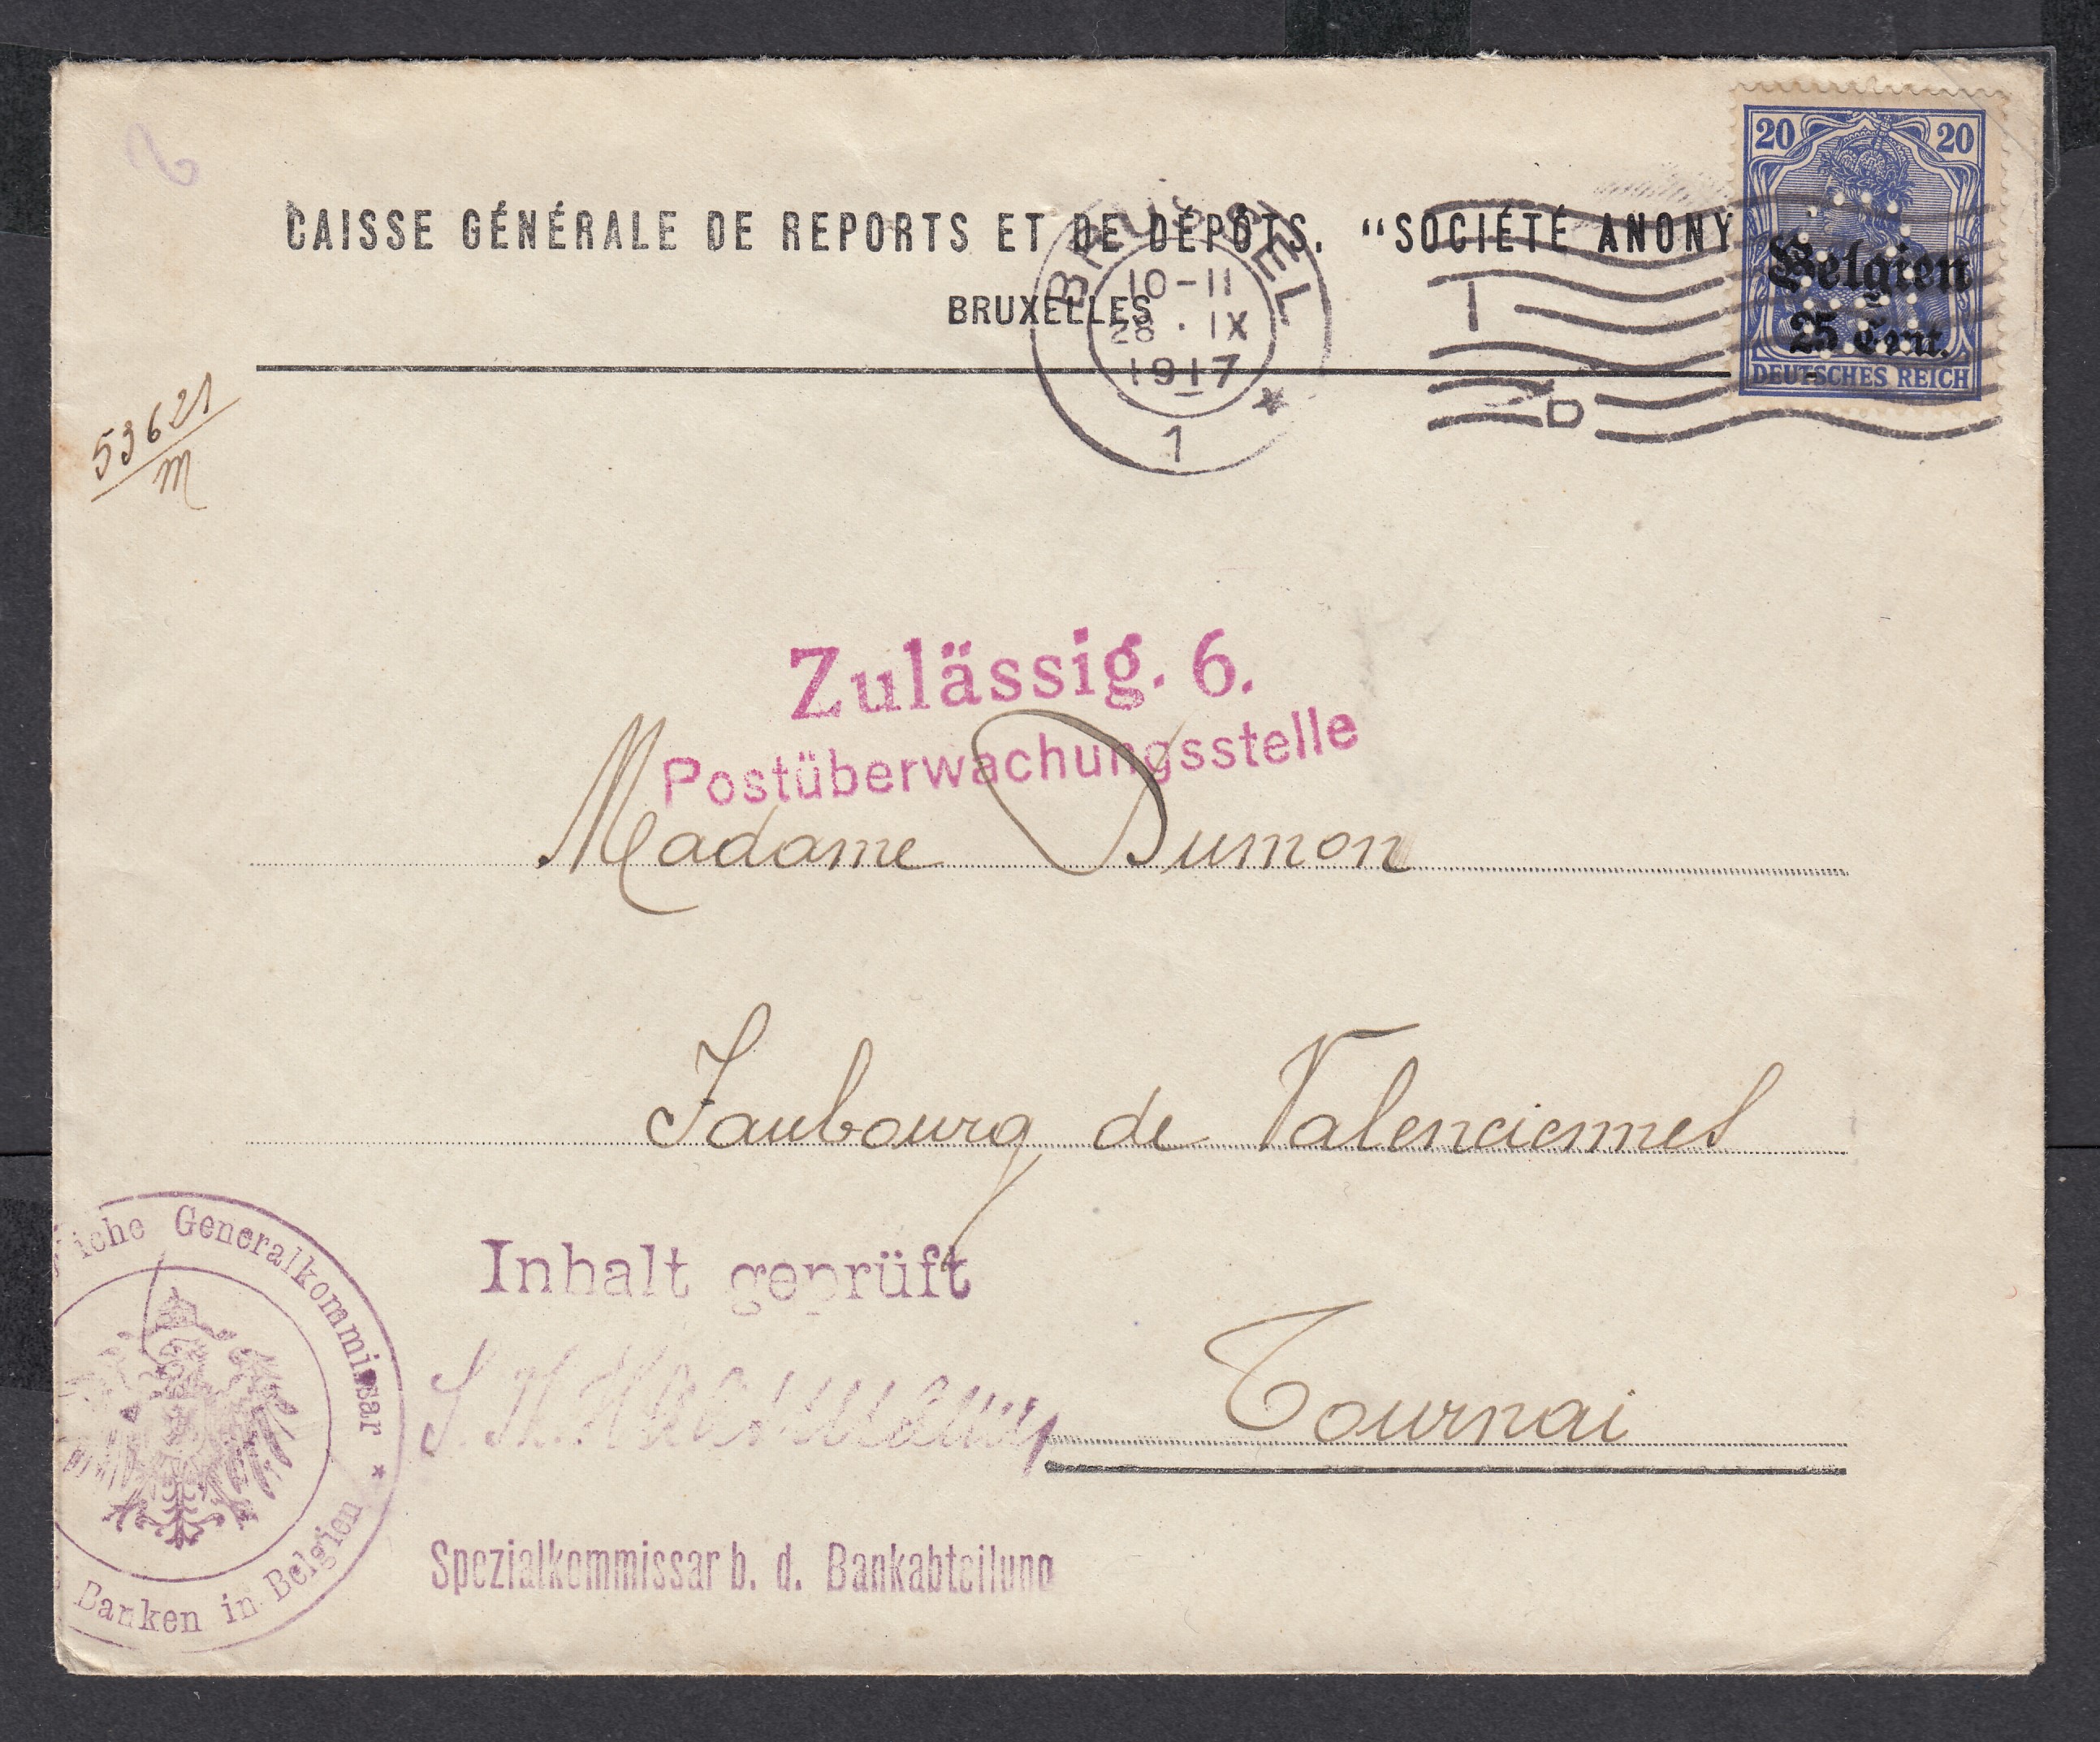 20 20
CAISSE GÉNÉRALE DE REPORTS ET DE DÉPÔTS. "SOCIÉTÉ ANONY
BRUXELLES
BRÜSSEL
10-11
28.IX
1917
1
Belgien
25 Cent.
DEUTSCHES REICH
53621
m
Zulässig. 6.
Postüberwachungsstelle
Madame Dumon
Faubourg de Valenciennes
Tournai
iche Generalkommissar
Banken in Belgien
Inhalt geprüft
Spezialkommissar b. d. Bankabteilung